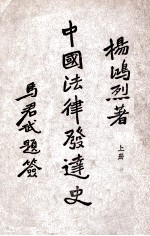 楊鴻烈著
上册
中國法律發達史
馬君武題簽